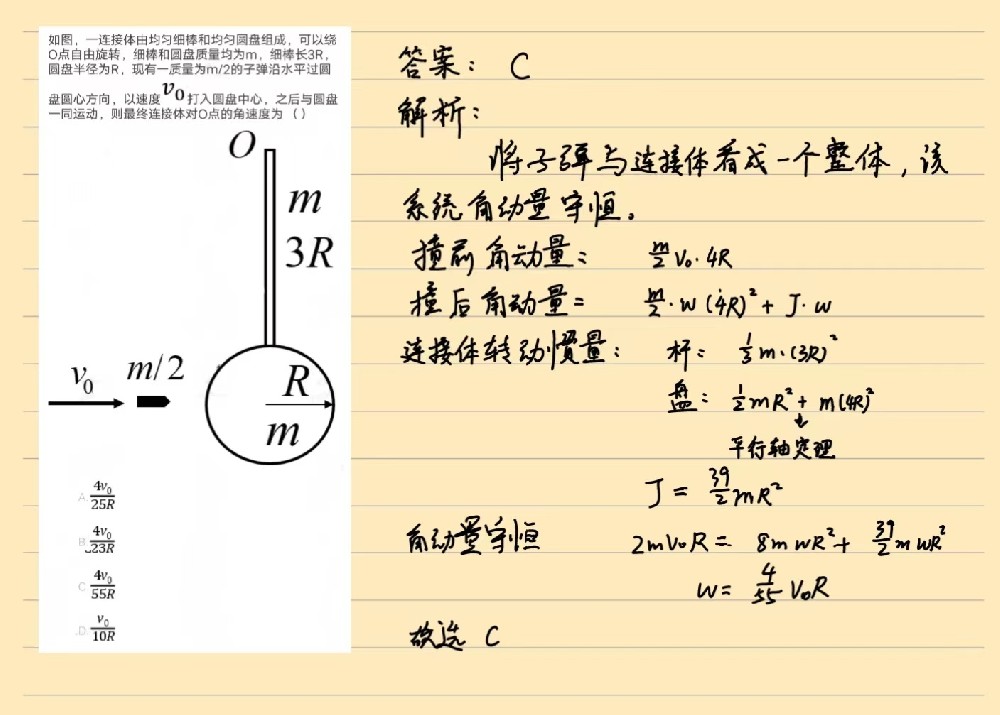 如图，一连接体由均匀细棒和均匀圆盘组成，可以绕
O点自由旋转，细棒和圆盘质量均为m，细棒长3R，
圆盘半径为R，现有一质量为m/2的子弹沿水平过圆
盘圆心方向，以速度v₀打入圆盘中心，之后与圆盘
一同运动，则最终连接体对O点的角速度为（ ）
O
m
3R
v₀ m/2
R
m
A. 4v₀/25R
B. 4v₀/23R
C. 4v₀/55R
D. v₀/10R
答案： C
解析：
将子弹与连接体看成一个整体，该
系统角动量守恒。
撞前角动量： m/2 V₀·4R
撞后角动量= m/2·w(4R)²+ J·w
连接体转动惯量： 杆： 1/3 m·(3R)²
盘： 1/2 mR²+ m(4R)²
↓
平行轴定理
J = 39/2 mR²
角动量守恒 2mV₀R = 8mwR²+ 39/2 mwR²
w= 4/55 V₀R
故选 C